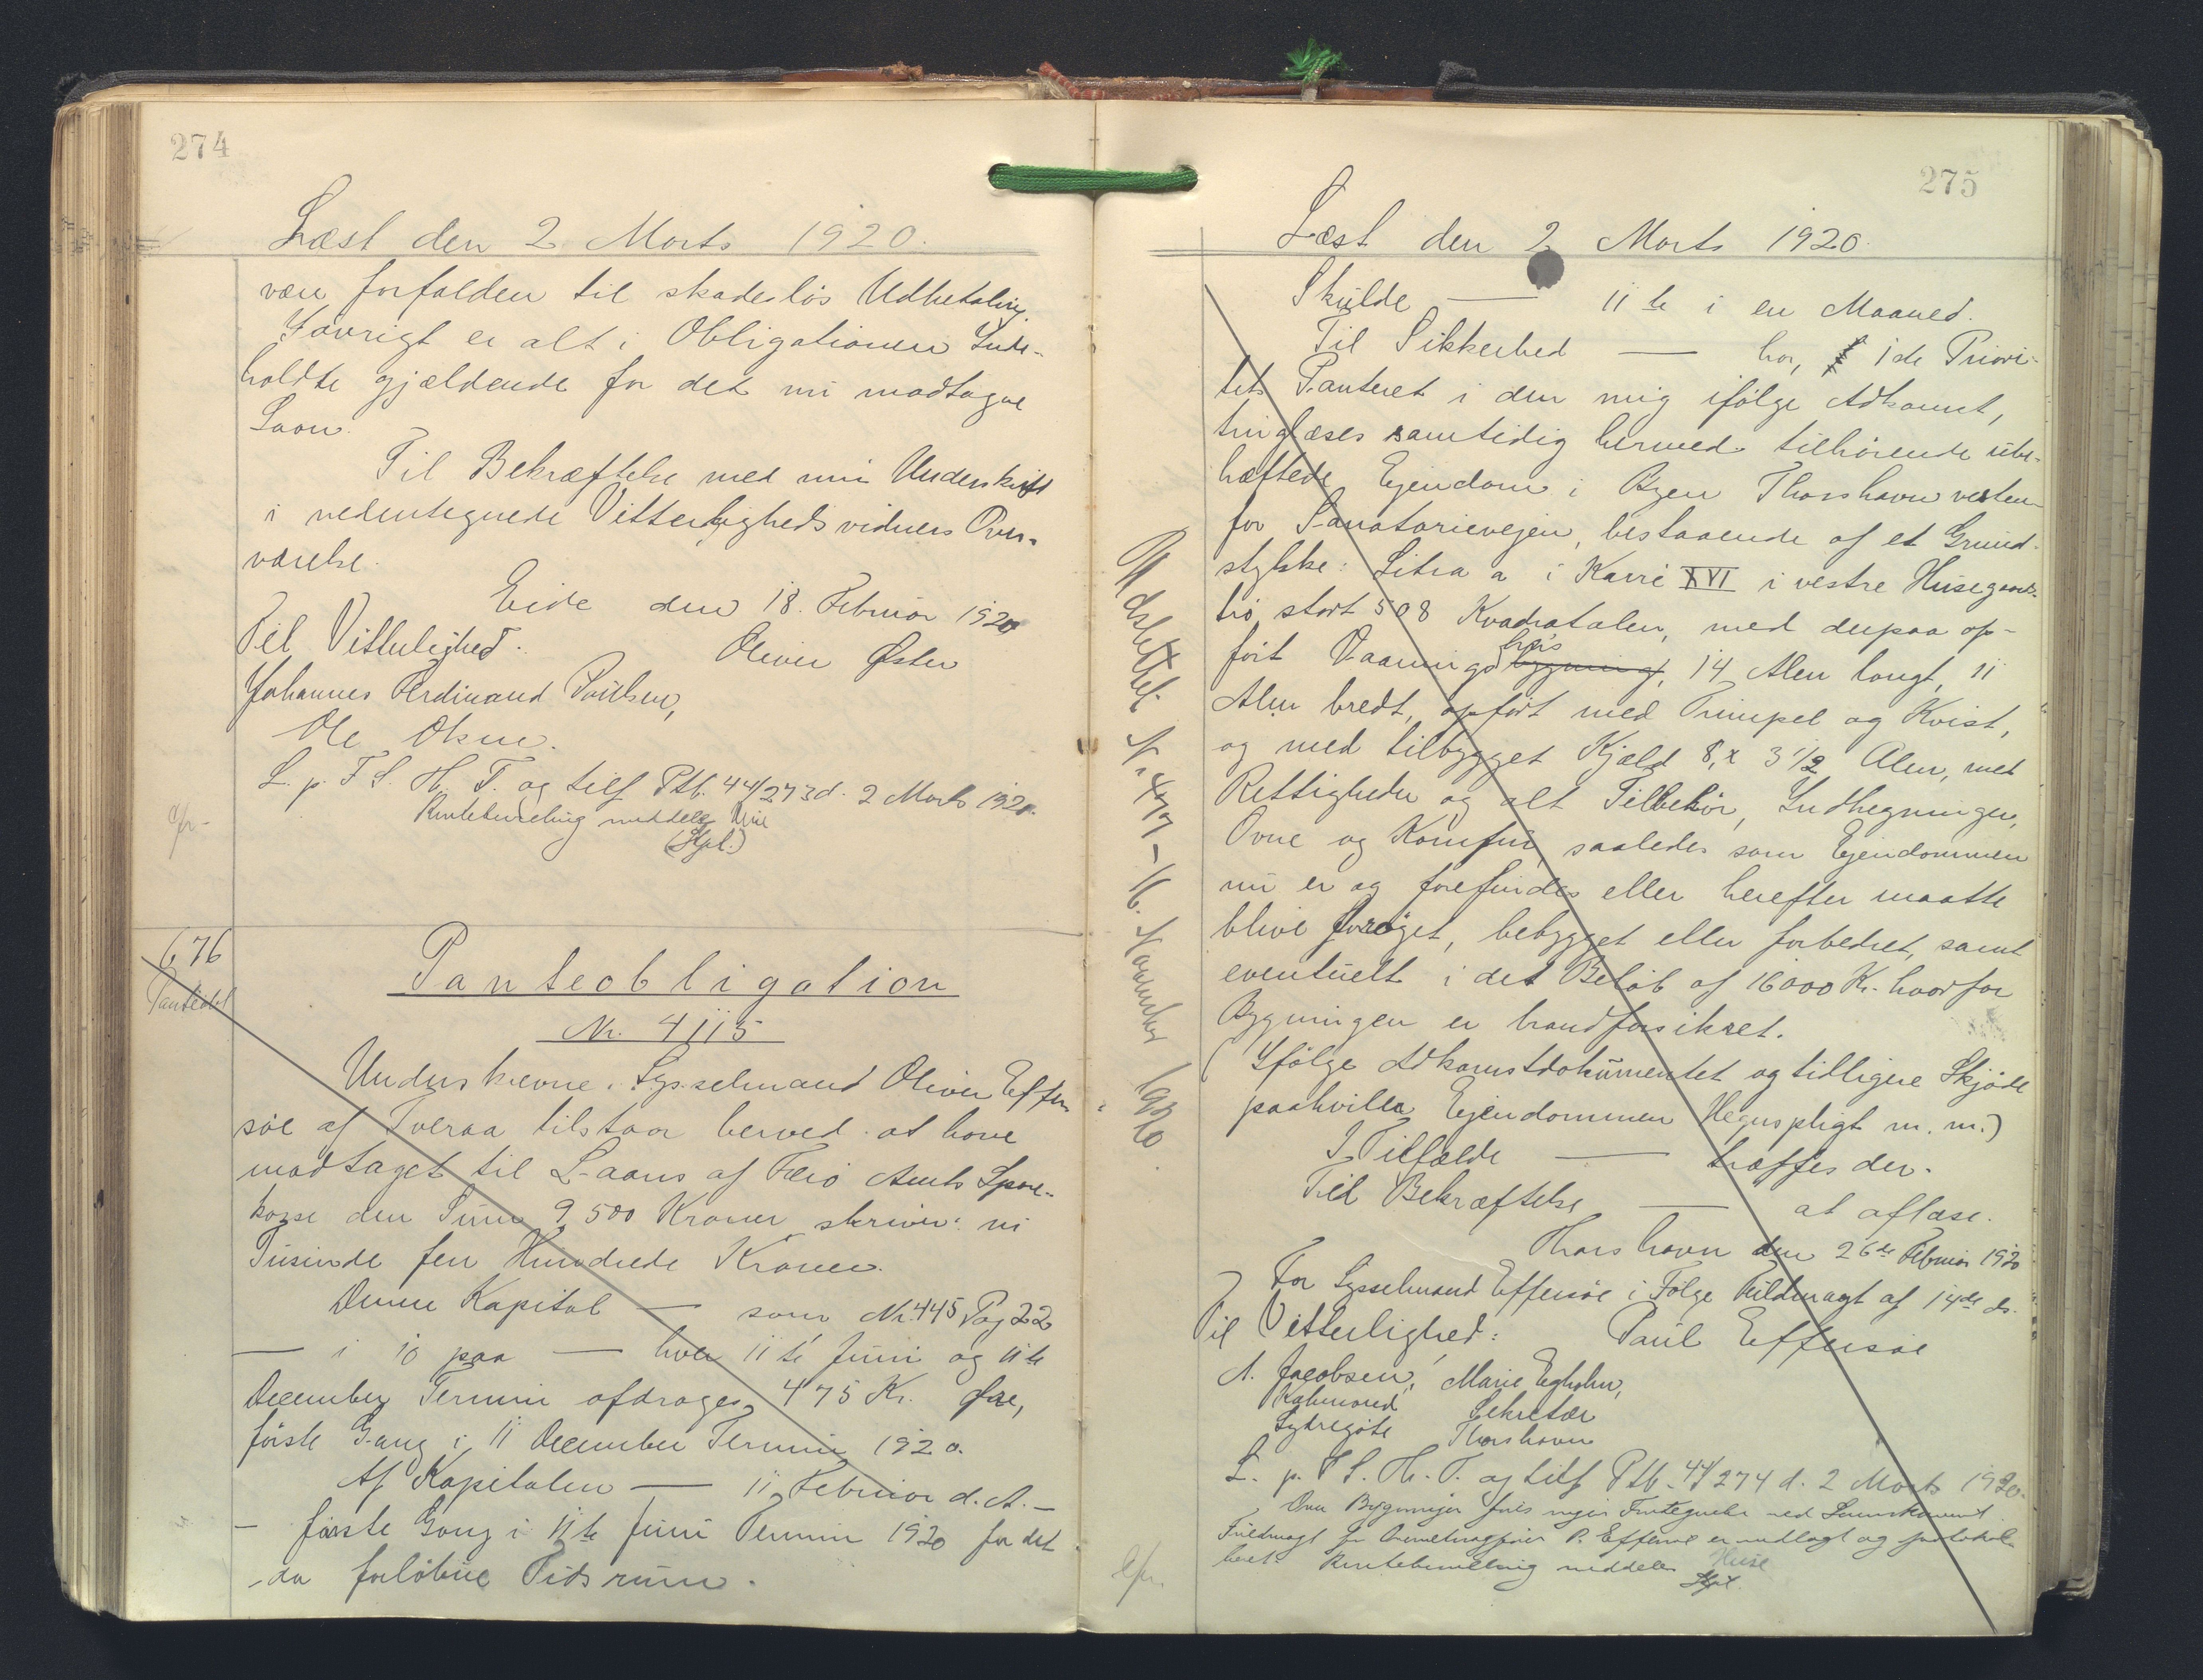 274
Læst den 2 Marts 1920.
være forfalden til skadesløs Udbetaling.
Iøvrigt er alt i Obligationen Inde-
holdte gjældende for det nu modtagne
Laan.
Til Bekræftelse med min Underskrift
i nedentegnede Vitterlighedsvidners Over-
værelse.
Eide den 18. Februar 1920
Til Vitterlighed. Oliver Øster
Johannes Ferdinand Poulsen,
Ole Olsen.
L. p. F S. H. T. og tilf Ptb. 44/273 d. 2 Marts 1920.
Rentebevilling meddeles
(Stpl.)
676
Panteobl
Panteobligation
Nr. 4115
Underskrevne Sysselmand Oliver Effer-
søe af Tveraa tilstaar herved at have
modtaget til Laans af Færø Amts Spare-
kasse den Sum 9500 Kroner skriver: ni
Tusinde fem Hundrede Kroner.
Denne Kapital — som Nr. 445 Pag 22
— i 10 paa — hver 11te Juni og 11te
December Termin afdrages 475 Kr. Øre,
første Gang i 11 December Termin 1920.
Af Kapitalen — 11 Februar d. A. —
— første Gang i 11te Juni Termin 1920 for det
da forløbne Tidsrum.
275
Læst den 2 Marts 1920.
Skulde — 11te i en Maaned.
Til Sikkerhed — har, 1ste Priori-
tets Panteret i den mig ifølge Adkomst,
tinglæses samtidig hermed tilhørende ube-
hæftede Ejendom i Byen Thorshavn vesten-
for Sanatorievejen, bestaaende af et Grund-
stykke: Litra a i Karré XVI i vestre Husegaards-
bø stort 508 Kvadratalen, med derpaa op-
ført Vaanings hus bygning, 14 Alen langt, 11
Alen bredt, opført med Trimpel og Kvist,
og med tilbygget Kjæld 8 x 3 1/2 Alen, med
Rettigheder og alt Tilbehør, Indhegninger,
Ovne og Komfur, saaledes som Ejendommen
nu er og forefindes eller herefter maatte
blive forøget, bebygget eller forbedret, samt
eventuelt i det Beløb af 16000 Kr. hvorfor
Bygningen er brandforsikret.
(Ifølge Adkomstdokumentet og tidligere Skjøde
paahviler Ejendommen Hegnspligt m. m.)
I Tilfælde — træffes der.
Til Bekræftelse — at aflæse.
Thorshavn den 26de Februar 1920
For Sysselmand Effersøe i Følge Fuldmagt af 14de ds.
Til Vitterlighed: Poul Effersøe
A. Jacobsen, Marie Egholm,
Købmand Sekretær
Sydregøte Thorshavn
L. p. F S. H. T. og tilf Ptb. 44/274 d. 2 Marts 1920.
Om Bygningen
Fuldmagt for P. Effersøe er fremlagt og protokol-
leret. Rentebevilling meddeles
Stpl.
Udslettet Nr. 477 - 16. November 1920.